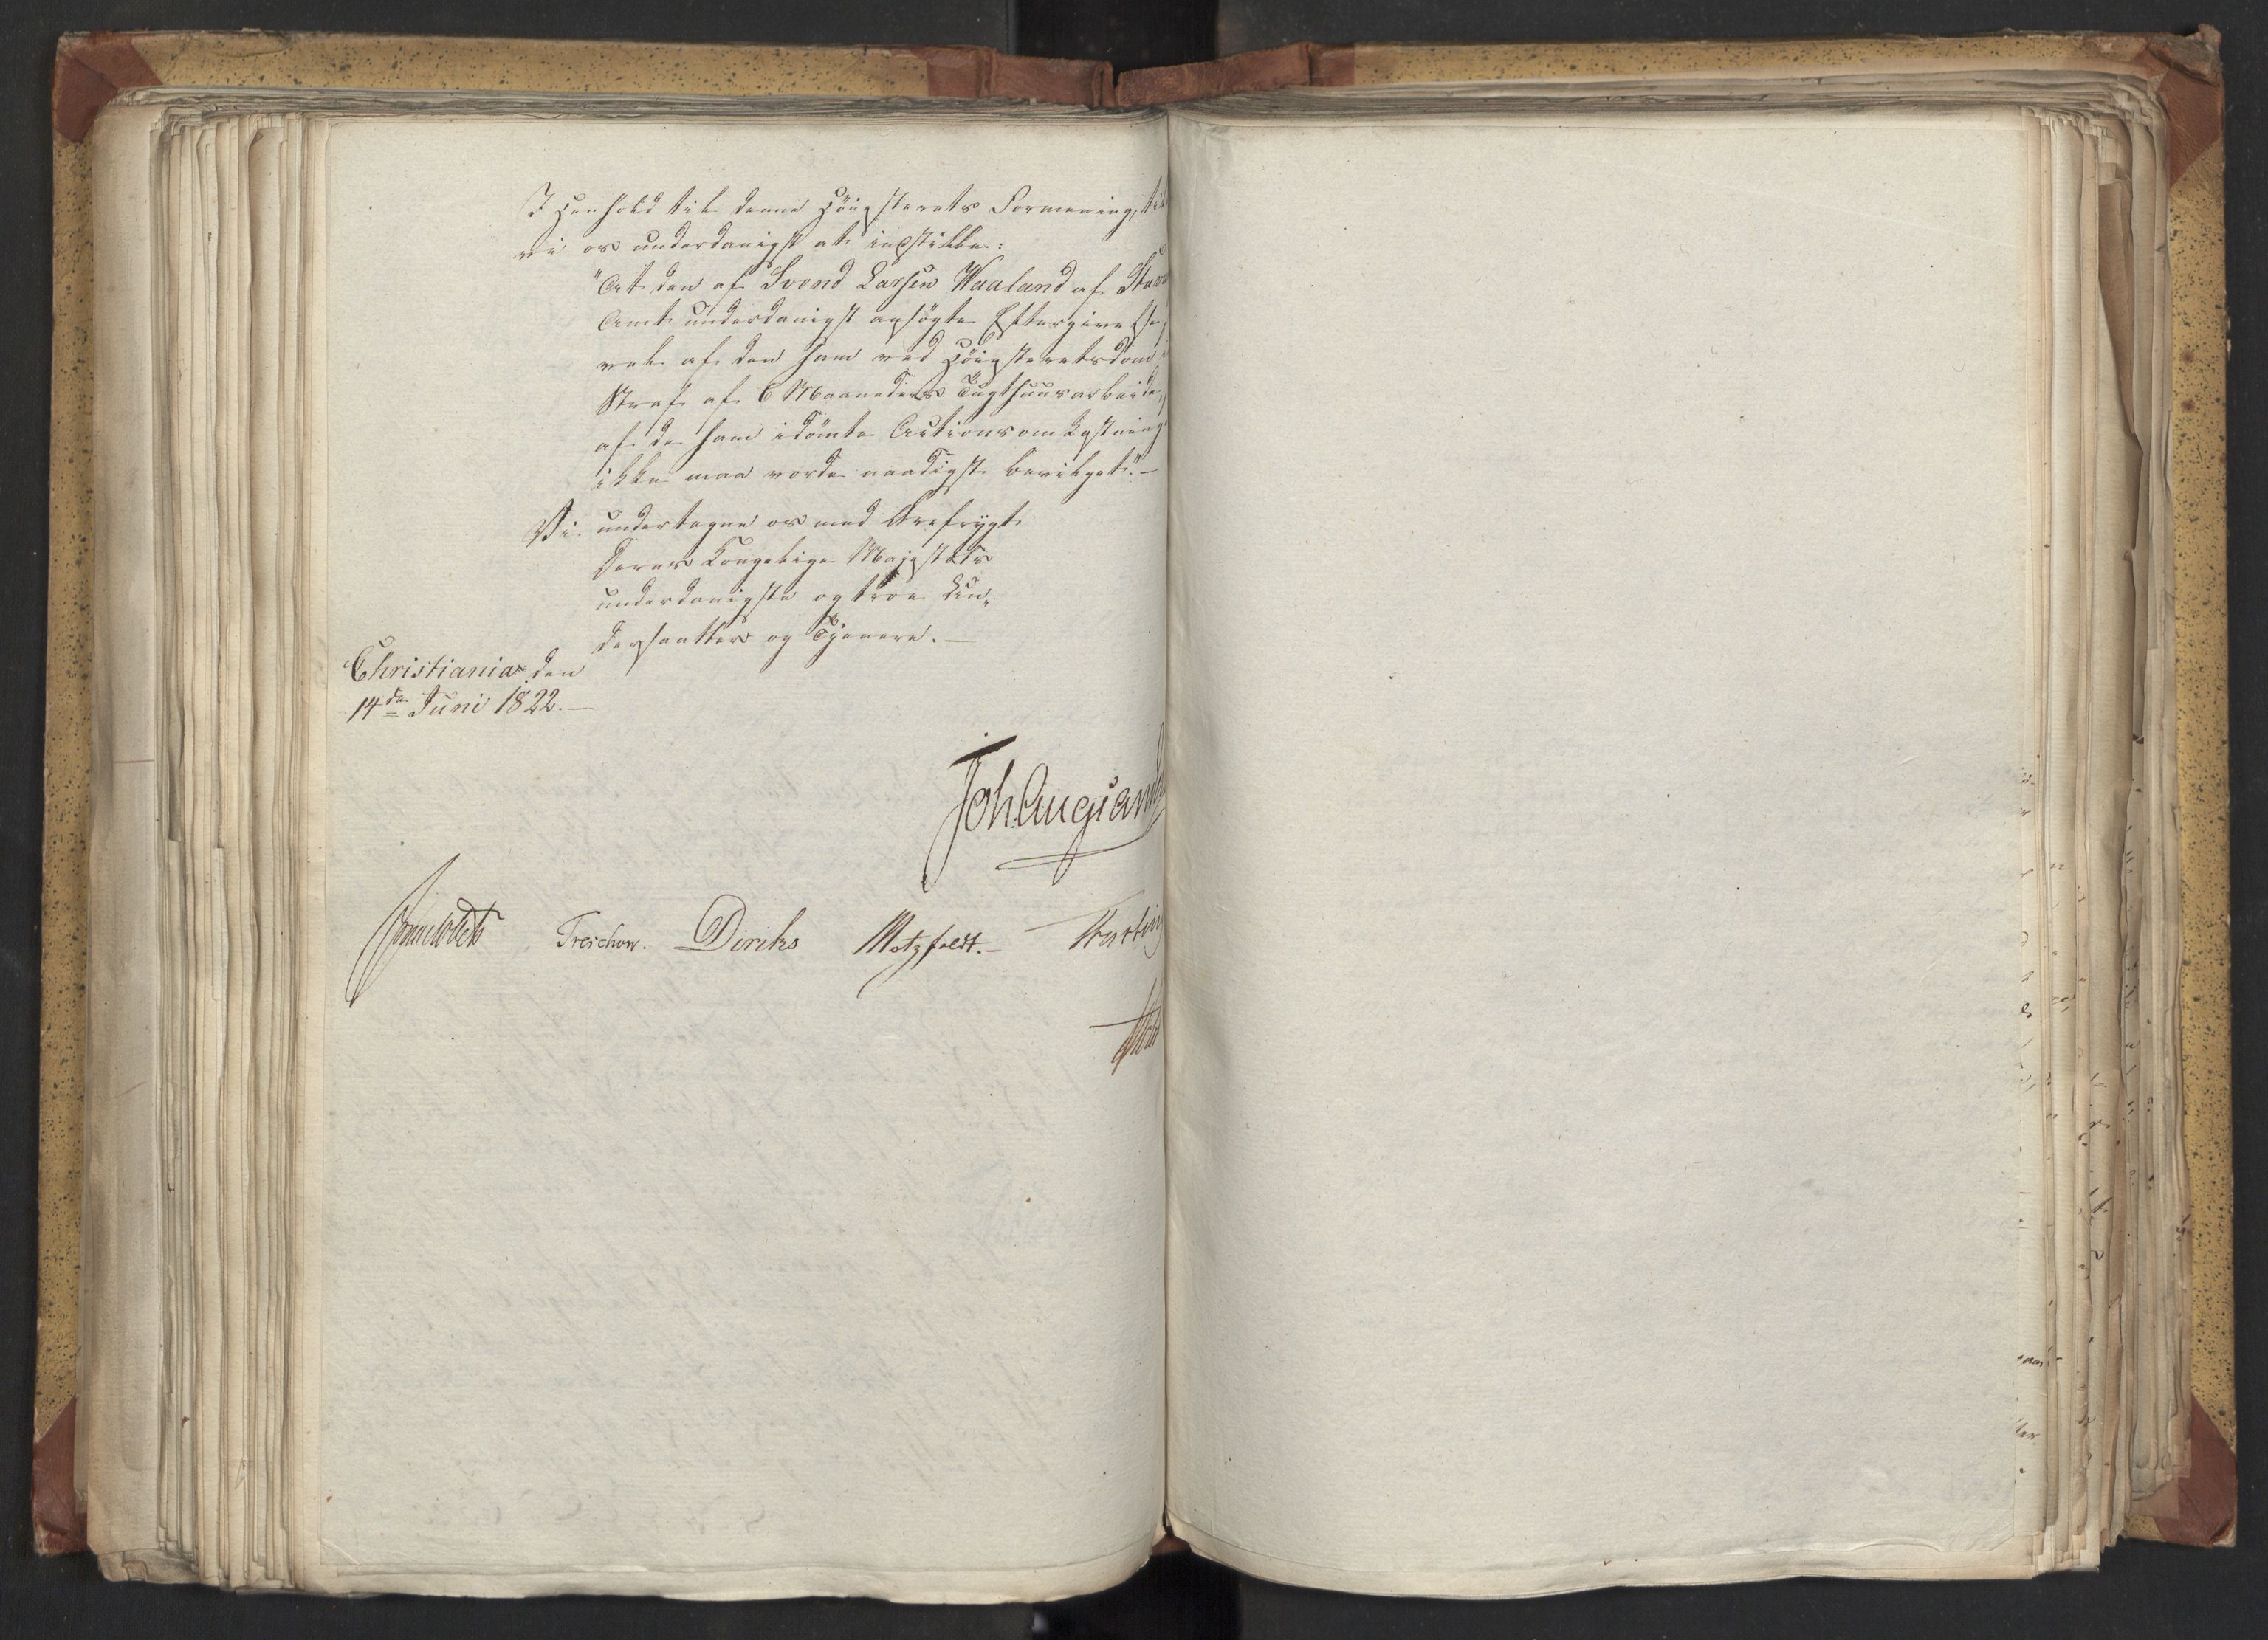 I Henhold til denne Höiesterets Formening, til
vi os underdanigst at indstille:
"At den af Svend Larsen Waaland af Stava
Amt underdanigst ansögte Eftergivelse,
vel af den ham ved Höiesteretsdom i
Straf af 6 Maaneders Tugthuusarbeide,
af de ham idömte Actionsomkostning
ikke maa vorde naadigst bevilget." –
Vi undertegne os med Ærefrygt
Deres Kongelige Majestæts
underdanigste og troe Un„
dersaatter og Tjenere. –
Christiania den
14de Juni 1822. –
Joh. Aug. Sand
Sommerhielm Treschow. Diriks Motzfeldt. –
Holst